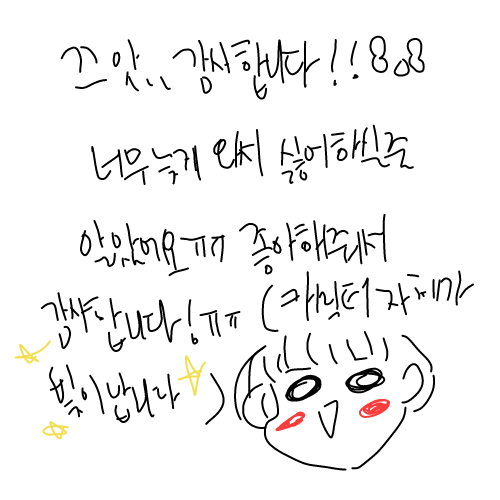 끄앗.. 감사합니다!!ㅠㅠ
너무 늦게 와서 싫어하신줄
알았어요ㅠㅠ 좋아해주셔서
감사합니다!ㅠㅠ (캐릭터 자체가
빛이납니다)